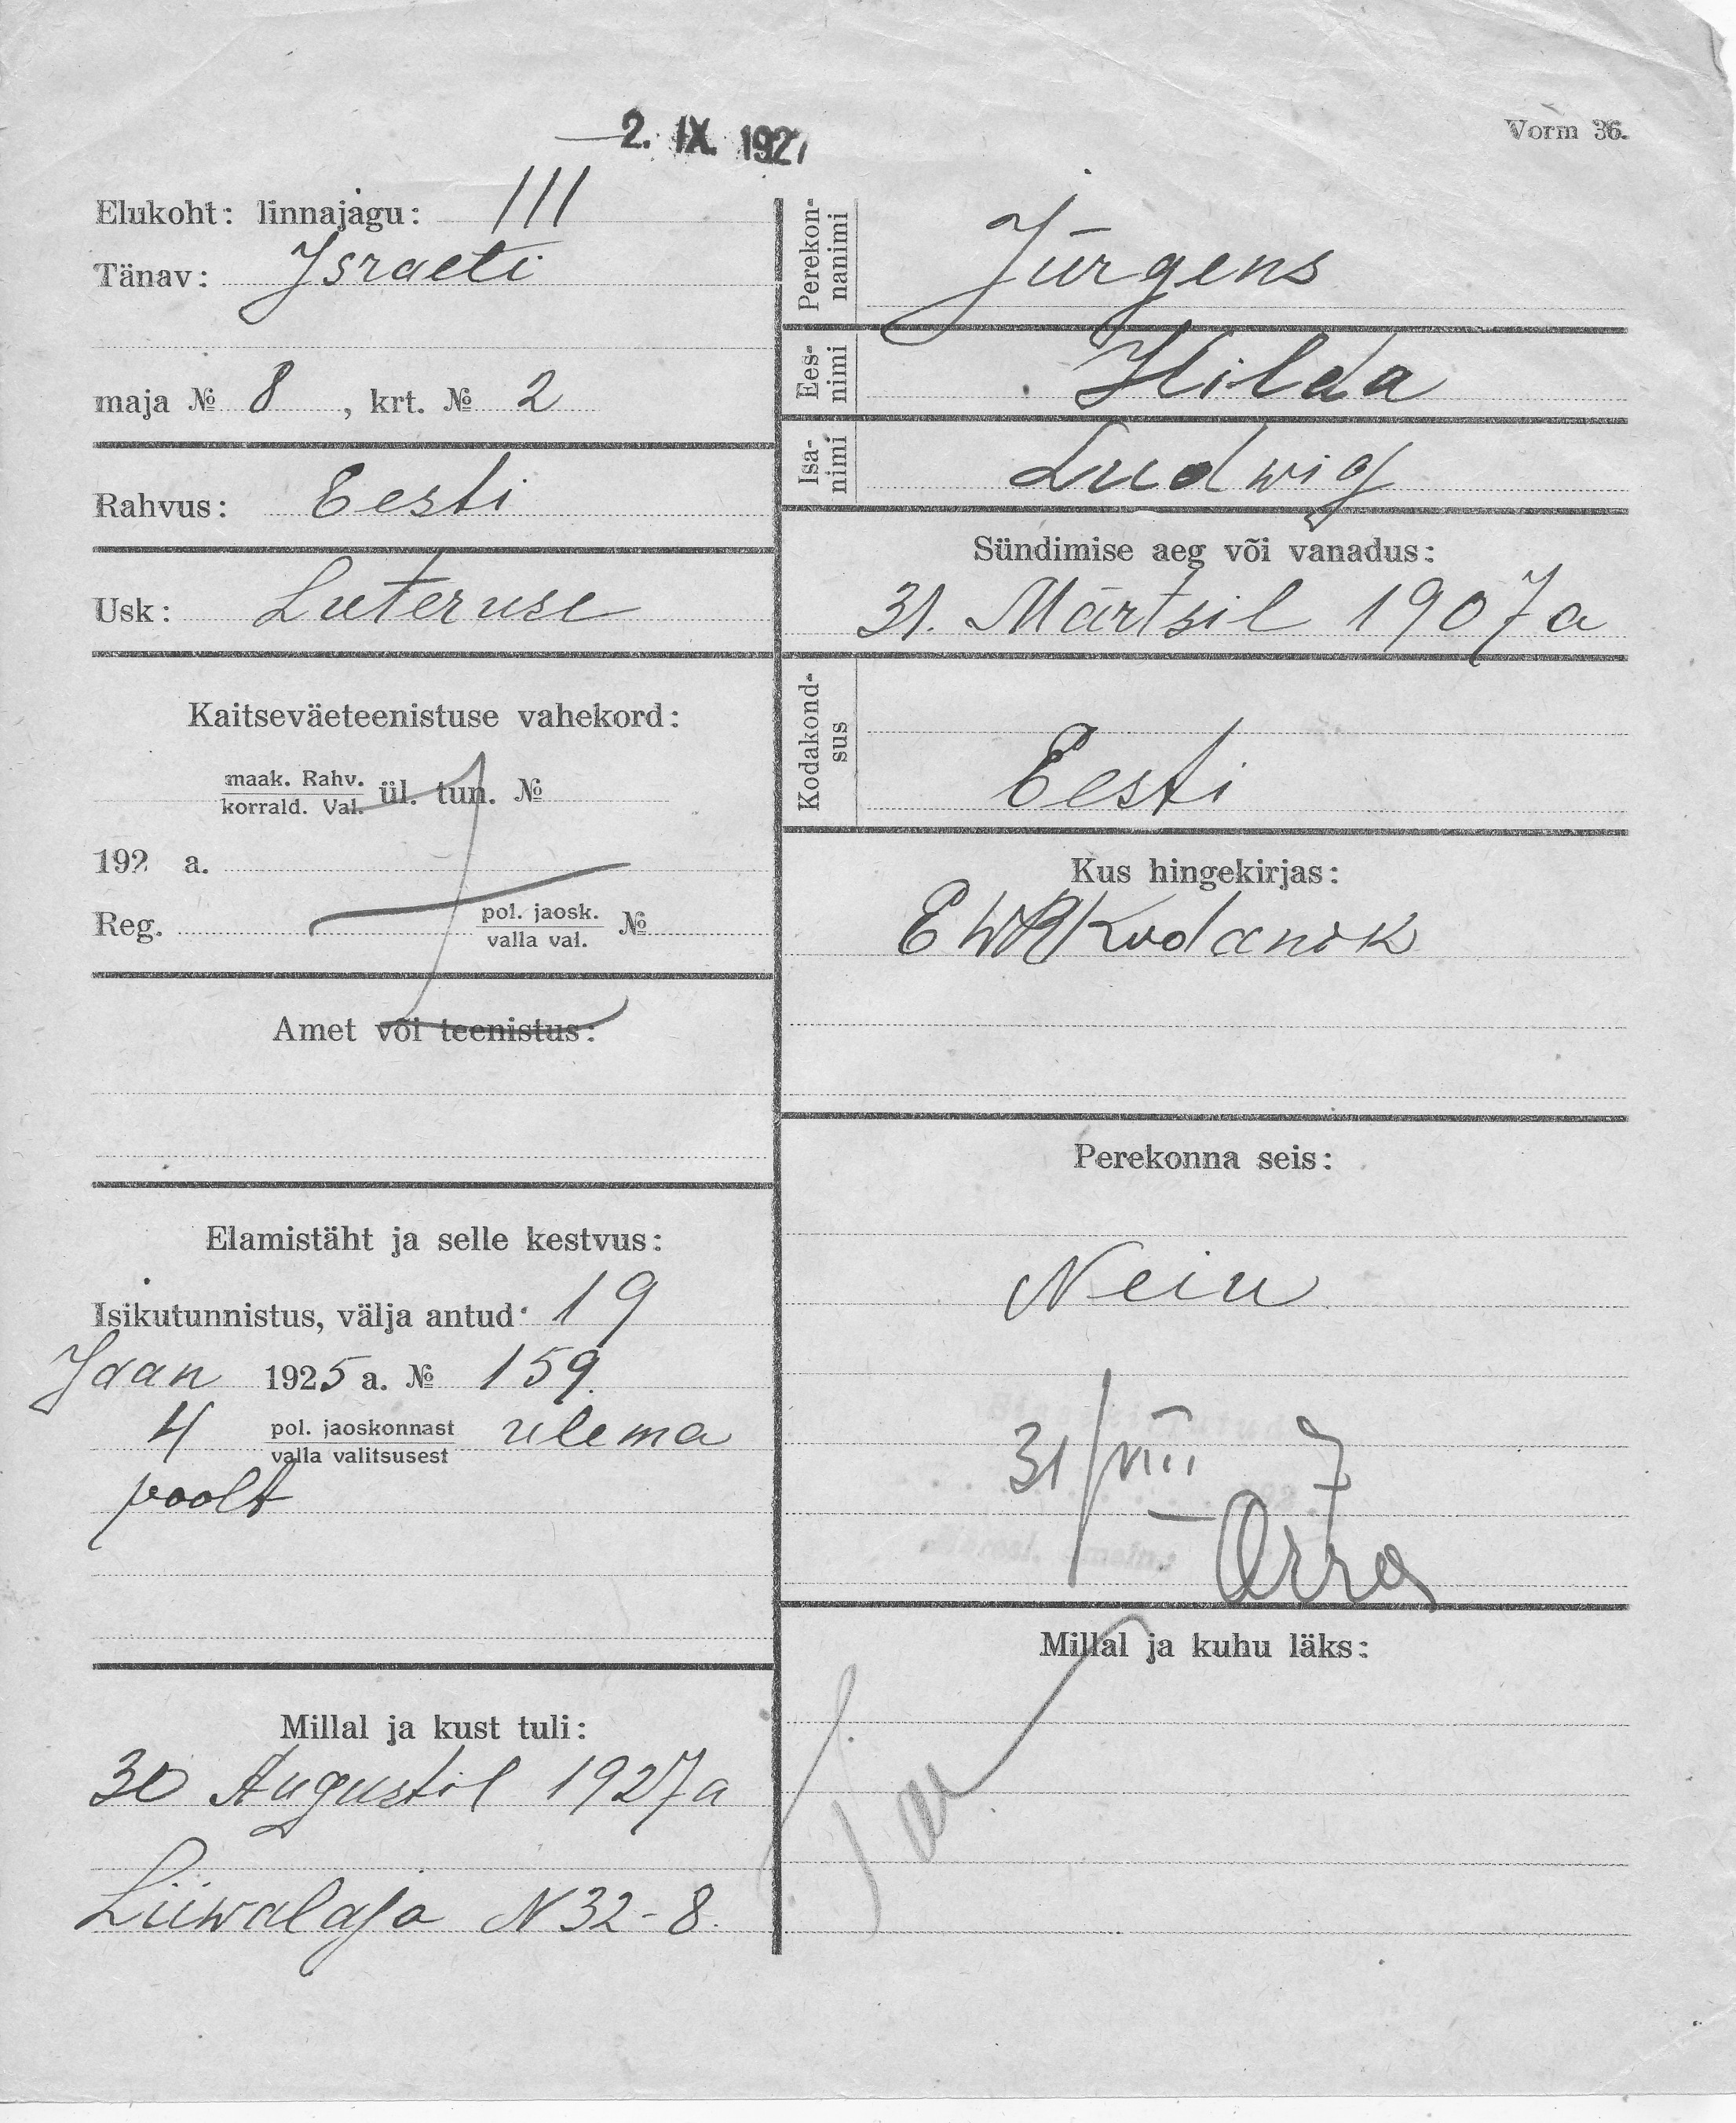 2. IX. 1927
Vorm 36.
Elukoht: linnajagu: III
Tänav: Israeli
maja № 8, krt. № 2
Rahvus: Eesti
Usk: Luteruse
Kaitseväeteenistuse vahekord:
maak. Rahv.
korrald. Val. ül. tun. №
192 a.
Reg. pol. jaosk.
valla val. №
Amet või teenistus:
Elamistäht ja selle kestvus:
Isikutunnistus, välja antud: 19
Jaan 1925 a. № 159.
4 pol. jaoskonnast
valla valitsusest ülema
poolt
Millal ja kust tuli:
30 Augustil 1927a
Liiwalaja N 32-8.
Perekon-
nanimi Jürgens
Ees-
nimi Hilda
Isa-
nimi Ludwig
Sündimise aeg või vanadus:
31. Märtsil 1907a
Kodakond-
sus Eesti
Kus hingekirjas:
EWR Kodanik
Perekonna seis:
Neiu
31/VIII 7
Millal ja kuhu läks: